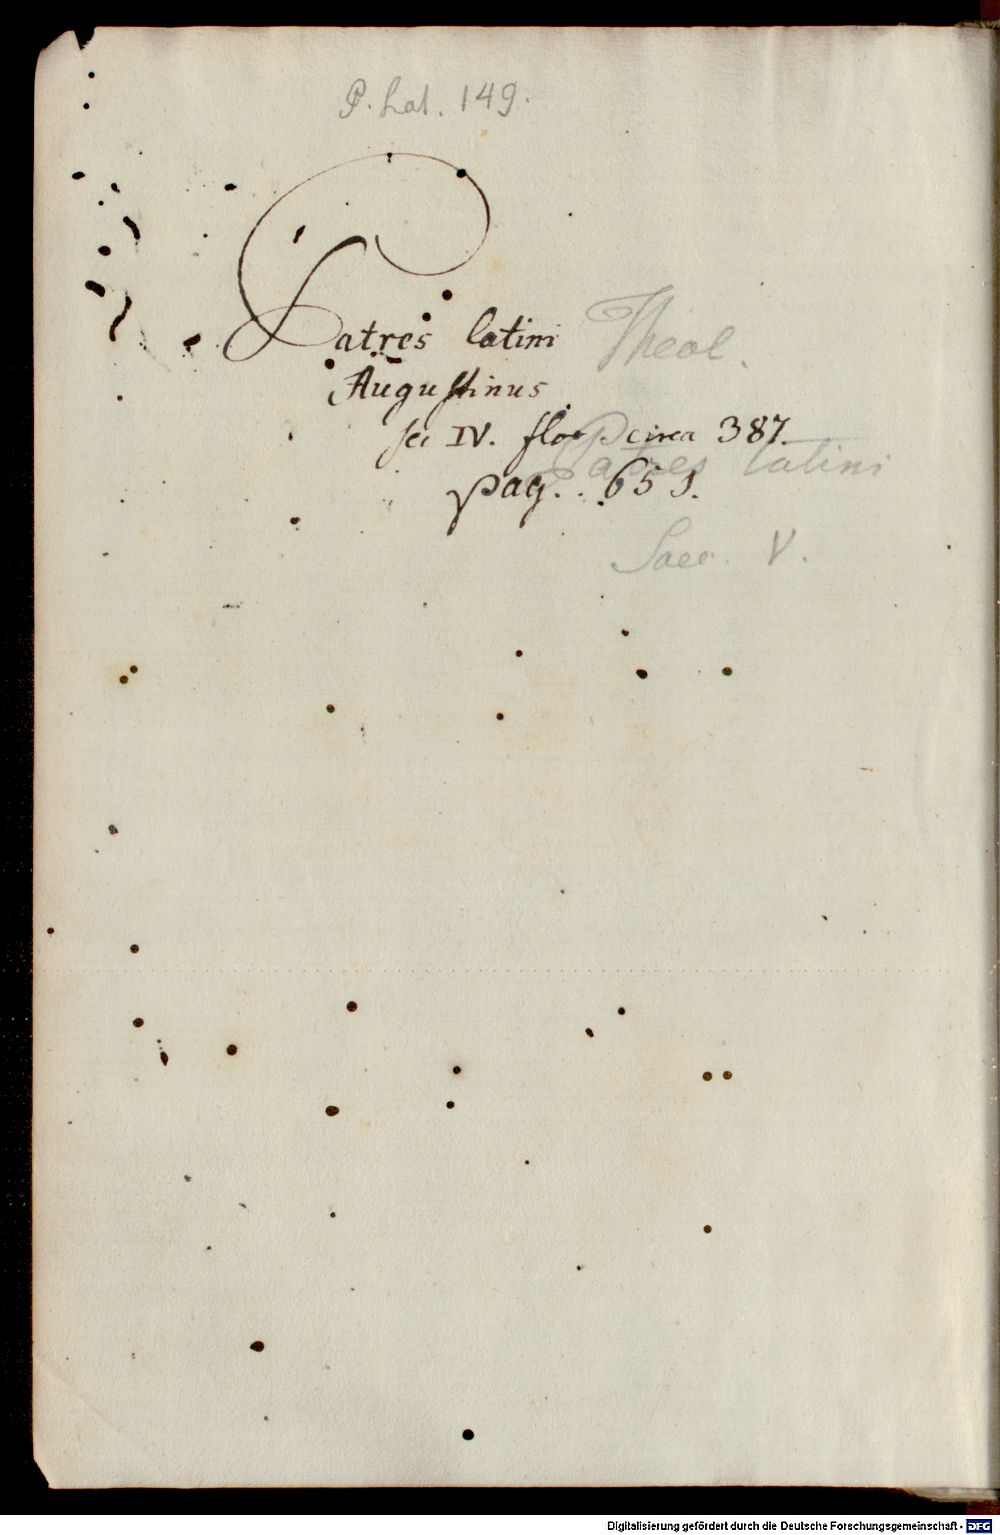 P. Lat. 149.
Patres latini
Theol.
Augustinus
sec IV. flor. circa 387.
Patres latini
pag. 651.
Saec. V.
Digitalisierung gefördert durch die Deutsche Forschungsgemeinschaft - DFG